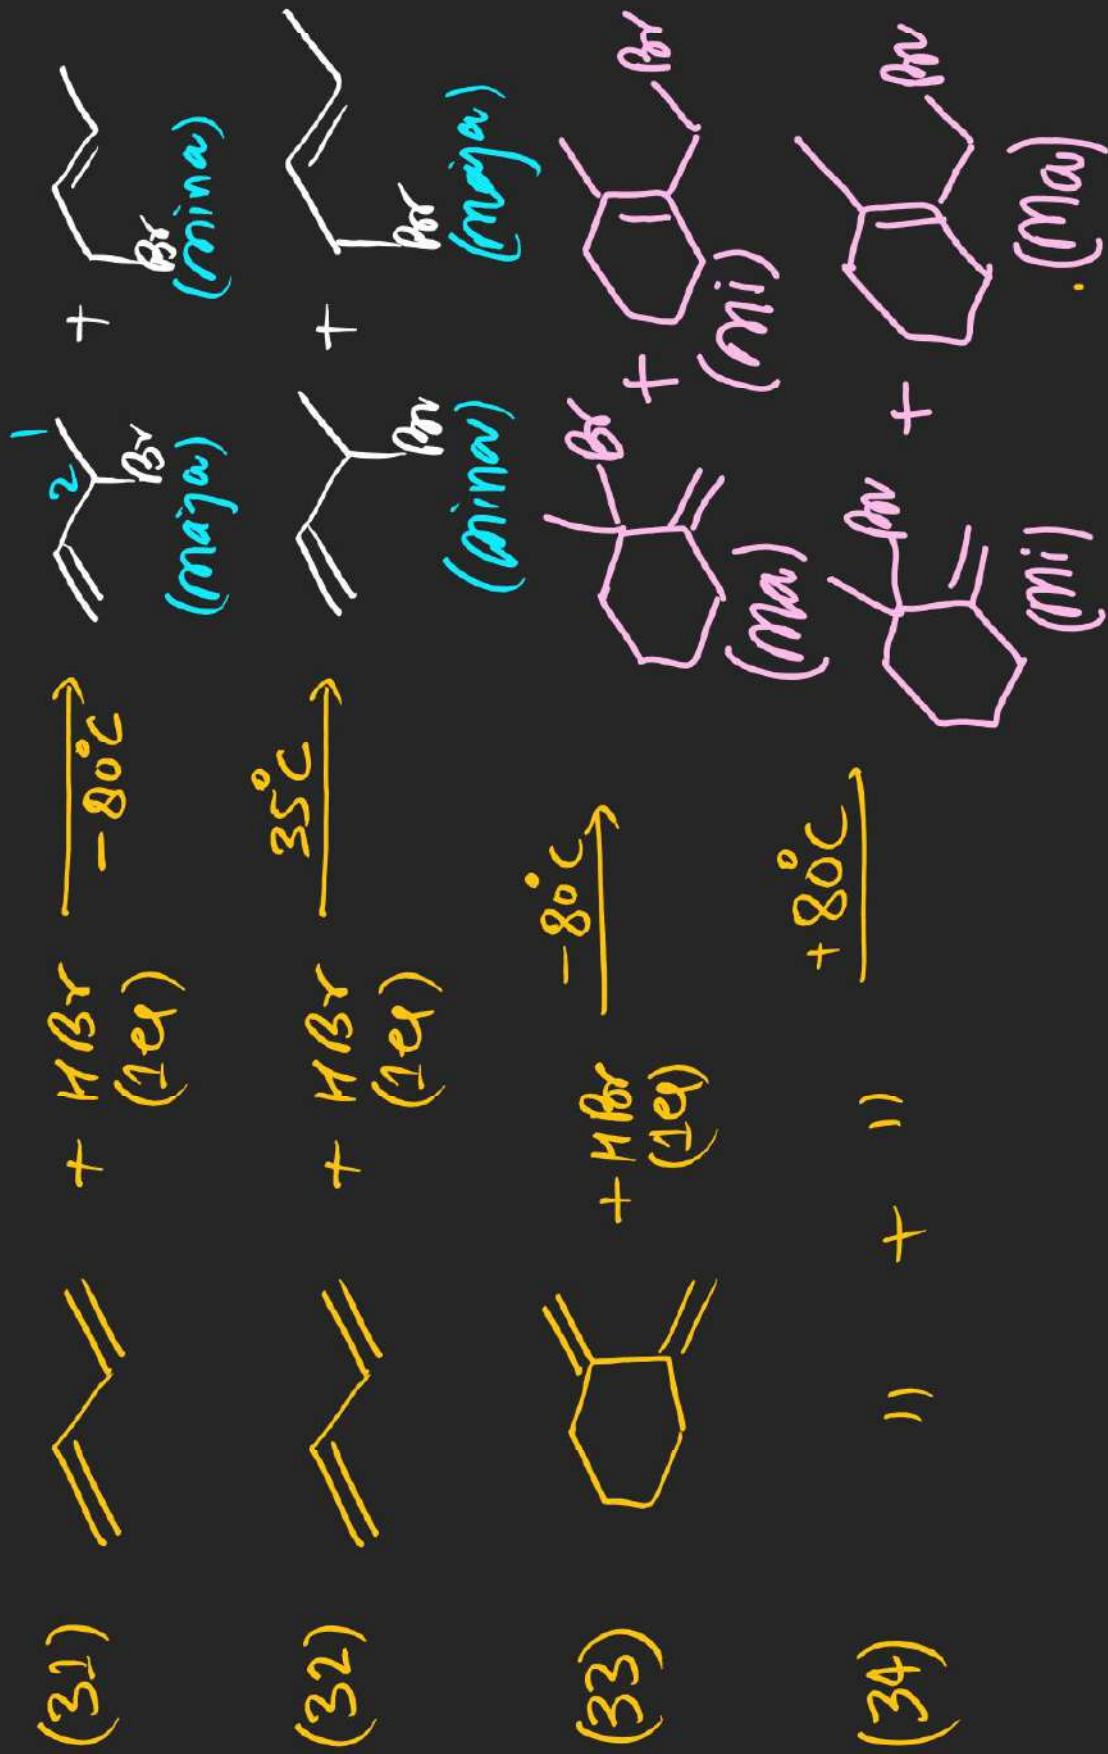 (31) + HBr (1eq) -80°C 2 1 Br + Br
(major) (minor)
(32) + HBr (1eq) 35°C Br + Br
(minor) (major)
(33) + HBr (1eq) -80°C Br + Br
(Ma) (Mi)
(34) " + " +80°C Br + Br
(Mi) (Ma)